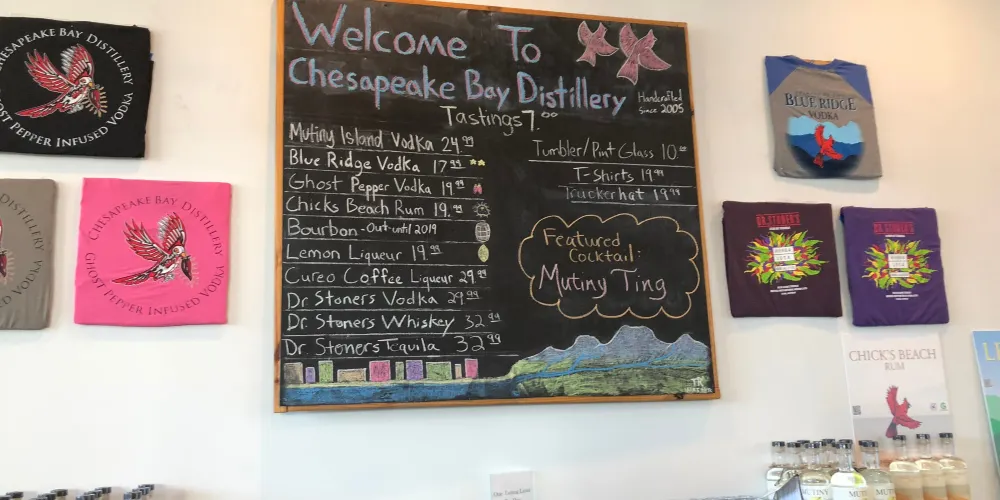 CHESAPEAKE BAY DISTILLERY
GHOST PEPPER INFUSED VODKA
CHESAPEAKE BAY DISTILLERY
GHOST PEPPER INFUSED VODKA
Welcome To
Chesapeake Bay Distillery
Handcrafted
Since 2005
Tastings 7.00
Mutiny Island Vodka 24.99
Blue Ridge Vodka 17.99
Ghost Pepper Vodka 19.99
Chicks Beach Rum 19.99
Bourbon-Out until 2019
Lemon Liqueur 19.99
Cureo Coffee Liqueur 29.99
Dr Stoners Vodka 29.99
Dr. Stoners Whiskey 32.99
Dr. Stoners Tequila 32.99
Tumbler/Pint Glass 10.00
T-Shirts 19.99
Truckerhat 19.99
Featured
Cocktail:
Mutiny Ting
BLUE RIDGE
VODKA
DR. STONER'S
DR. STONER'S
CHICK'S BEACH
RUM
MUTINY